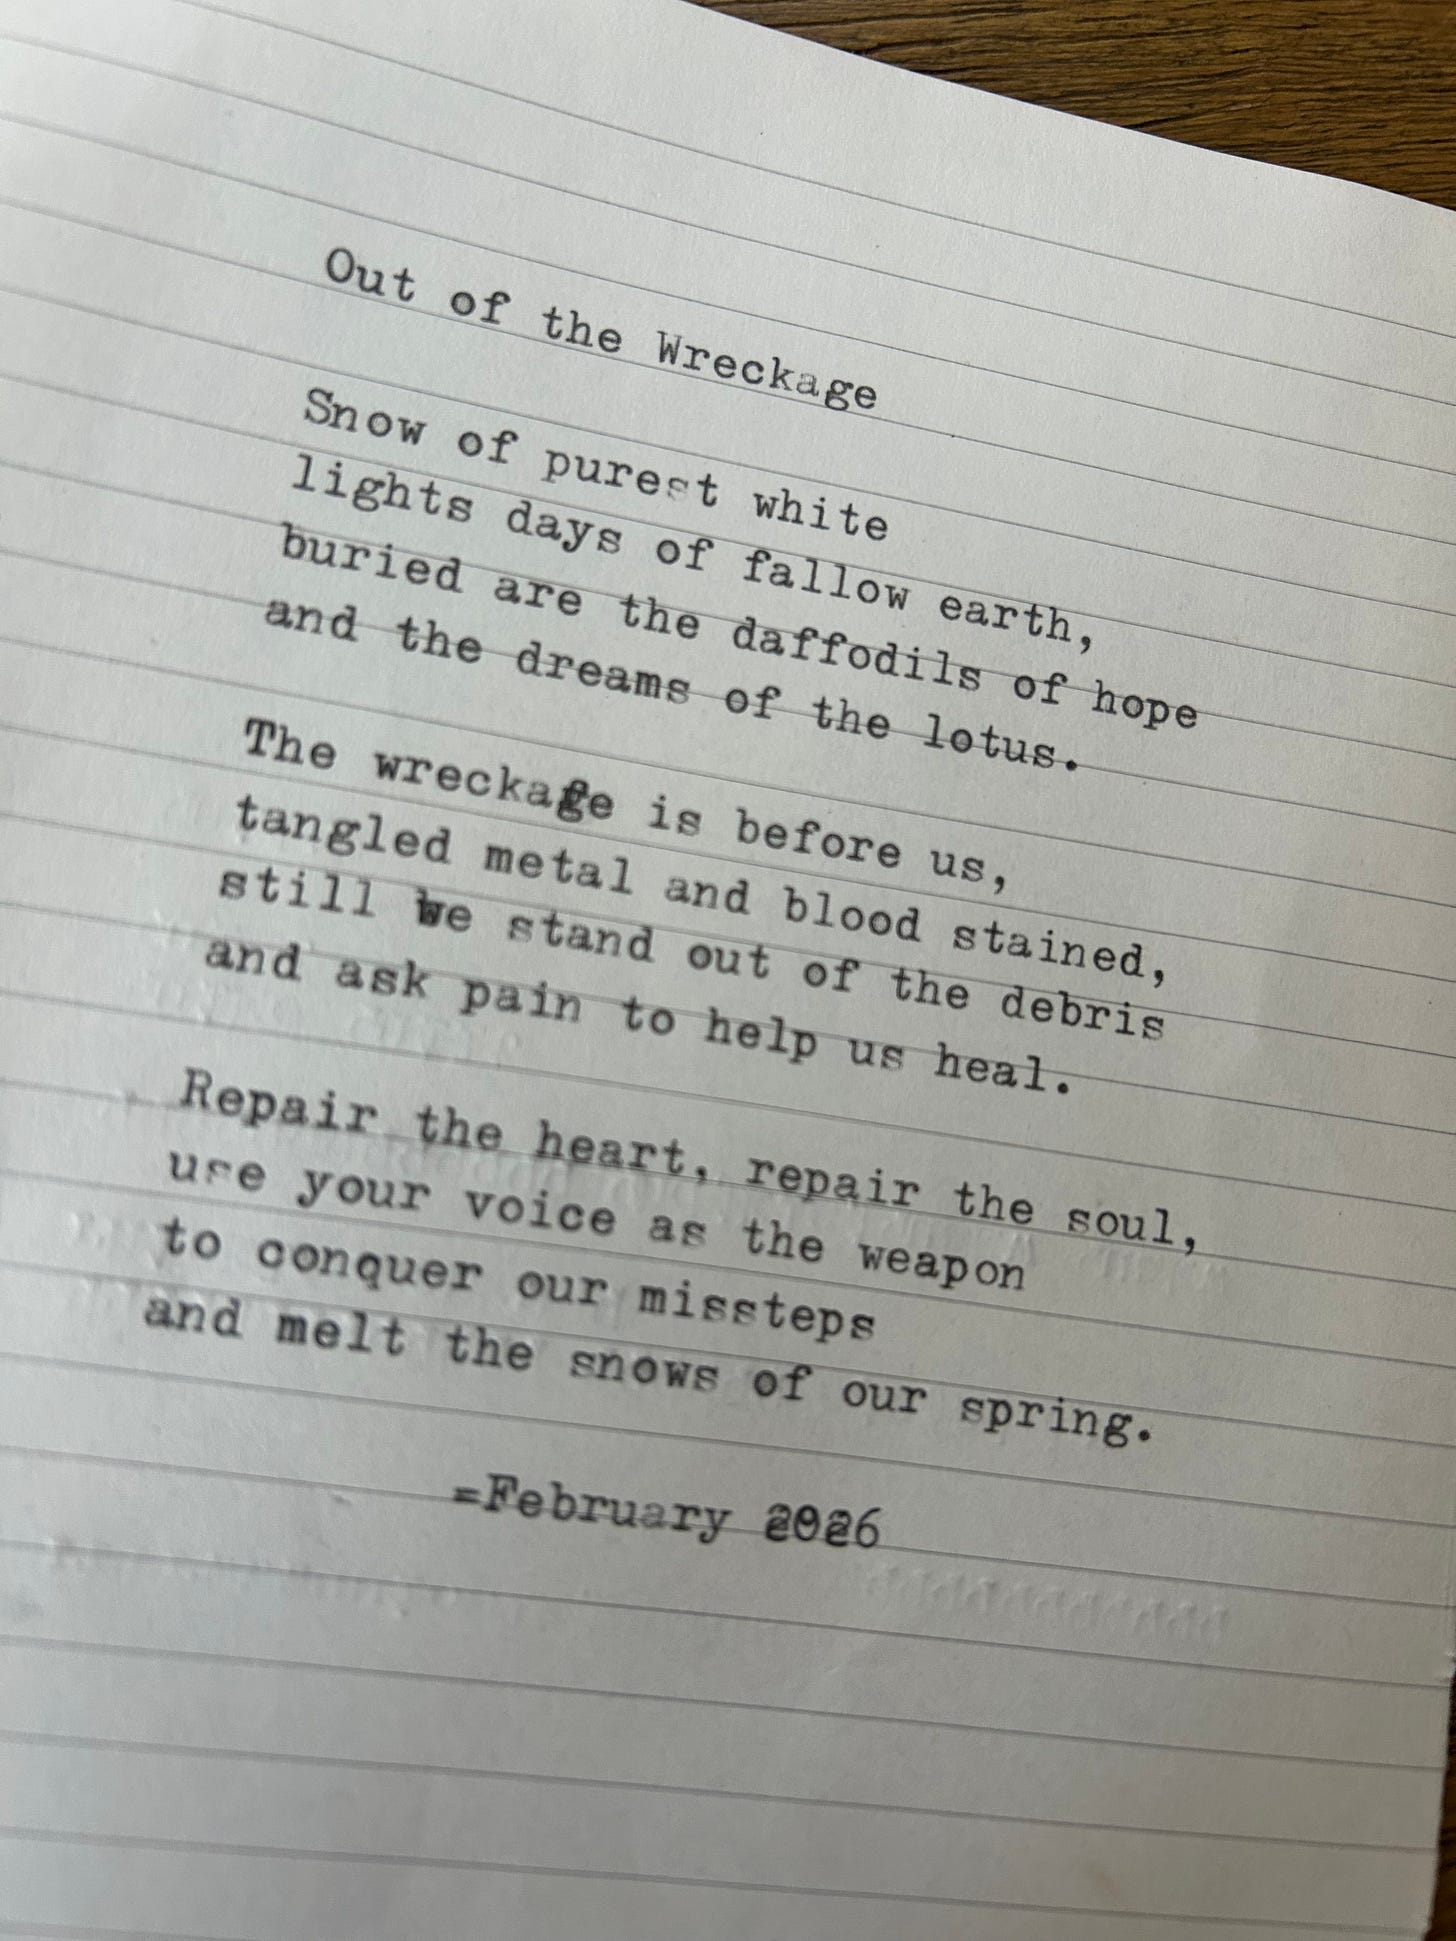 Out of the Wreckage
Snow of purest white
lights days of fallow earth,
buried are the daffodils of hope
and the dreams of the lotus.
The wreckage is before us,
tangled metal and blood stained,
still we stand out of the debris
and ask pain to help us heal.
Repair the heart, repair the soul,
use your voice as the weapon
to conquer our missteps
and melt the snows of our spring.
=February 2026